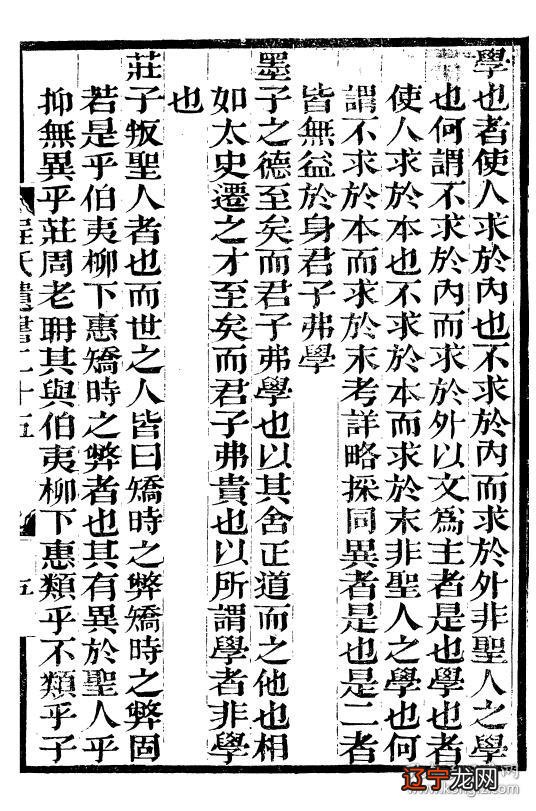 學也者使人求於內也不求於內而求於外非聖人之學
也何謂不求於內而求於外以文爲主者是也學也者
使人求於本也不求於本而求於末非聖人之學也何
謂不求於本而求於末考詳略採同異者是也是二者
皆無益於身君子弗學
墨子之德至矣而君子弗學也以其舍正道而之他也相
如太史遷之才至矣而君子弗貴也以所謂學者非學
也
莊子叛聖人者也而世之人皆曰矯時之弊矯時之弊固
若是乎伯夷柳下惠矯時之弊者也其有異於聖人乎
抑無異乎莊周老耼其與伯夷柳下惠類乎不類乎子
程氏遺書二十五
五
辽宁龙网